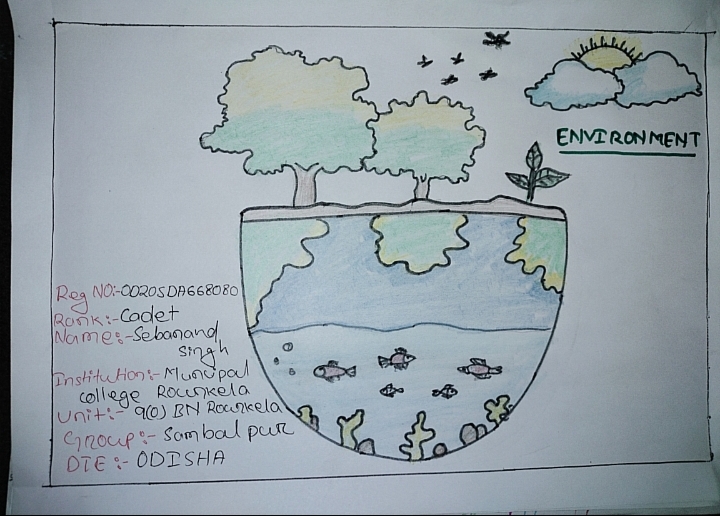 ENVIRONMENT
Reg NO:-OD20SDA668080
Rank:-Cadet
Name:-Sebanand
Singh
Institution:- Municipal
college Rourkela
Unit:- 9(O) BN Rourkela
Group:- Sambalpur
DTE:- ODISHA